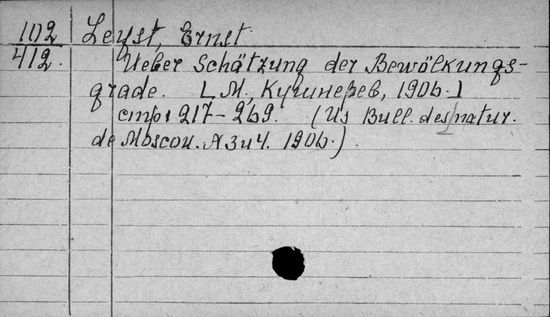 102 Leyst, Ernst
412. Ueber Schätzung der Bewölkungs-
grade. [М. Кушнерев, 1906.]
стр. 217-269. (Из Bull. des natur.
de Moscou. № 3 и 4. 1906.)